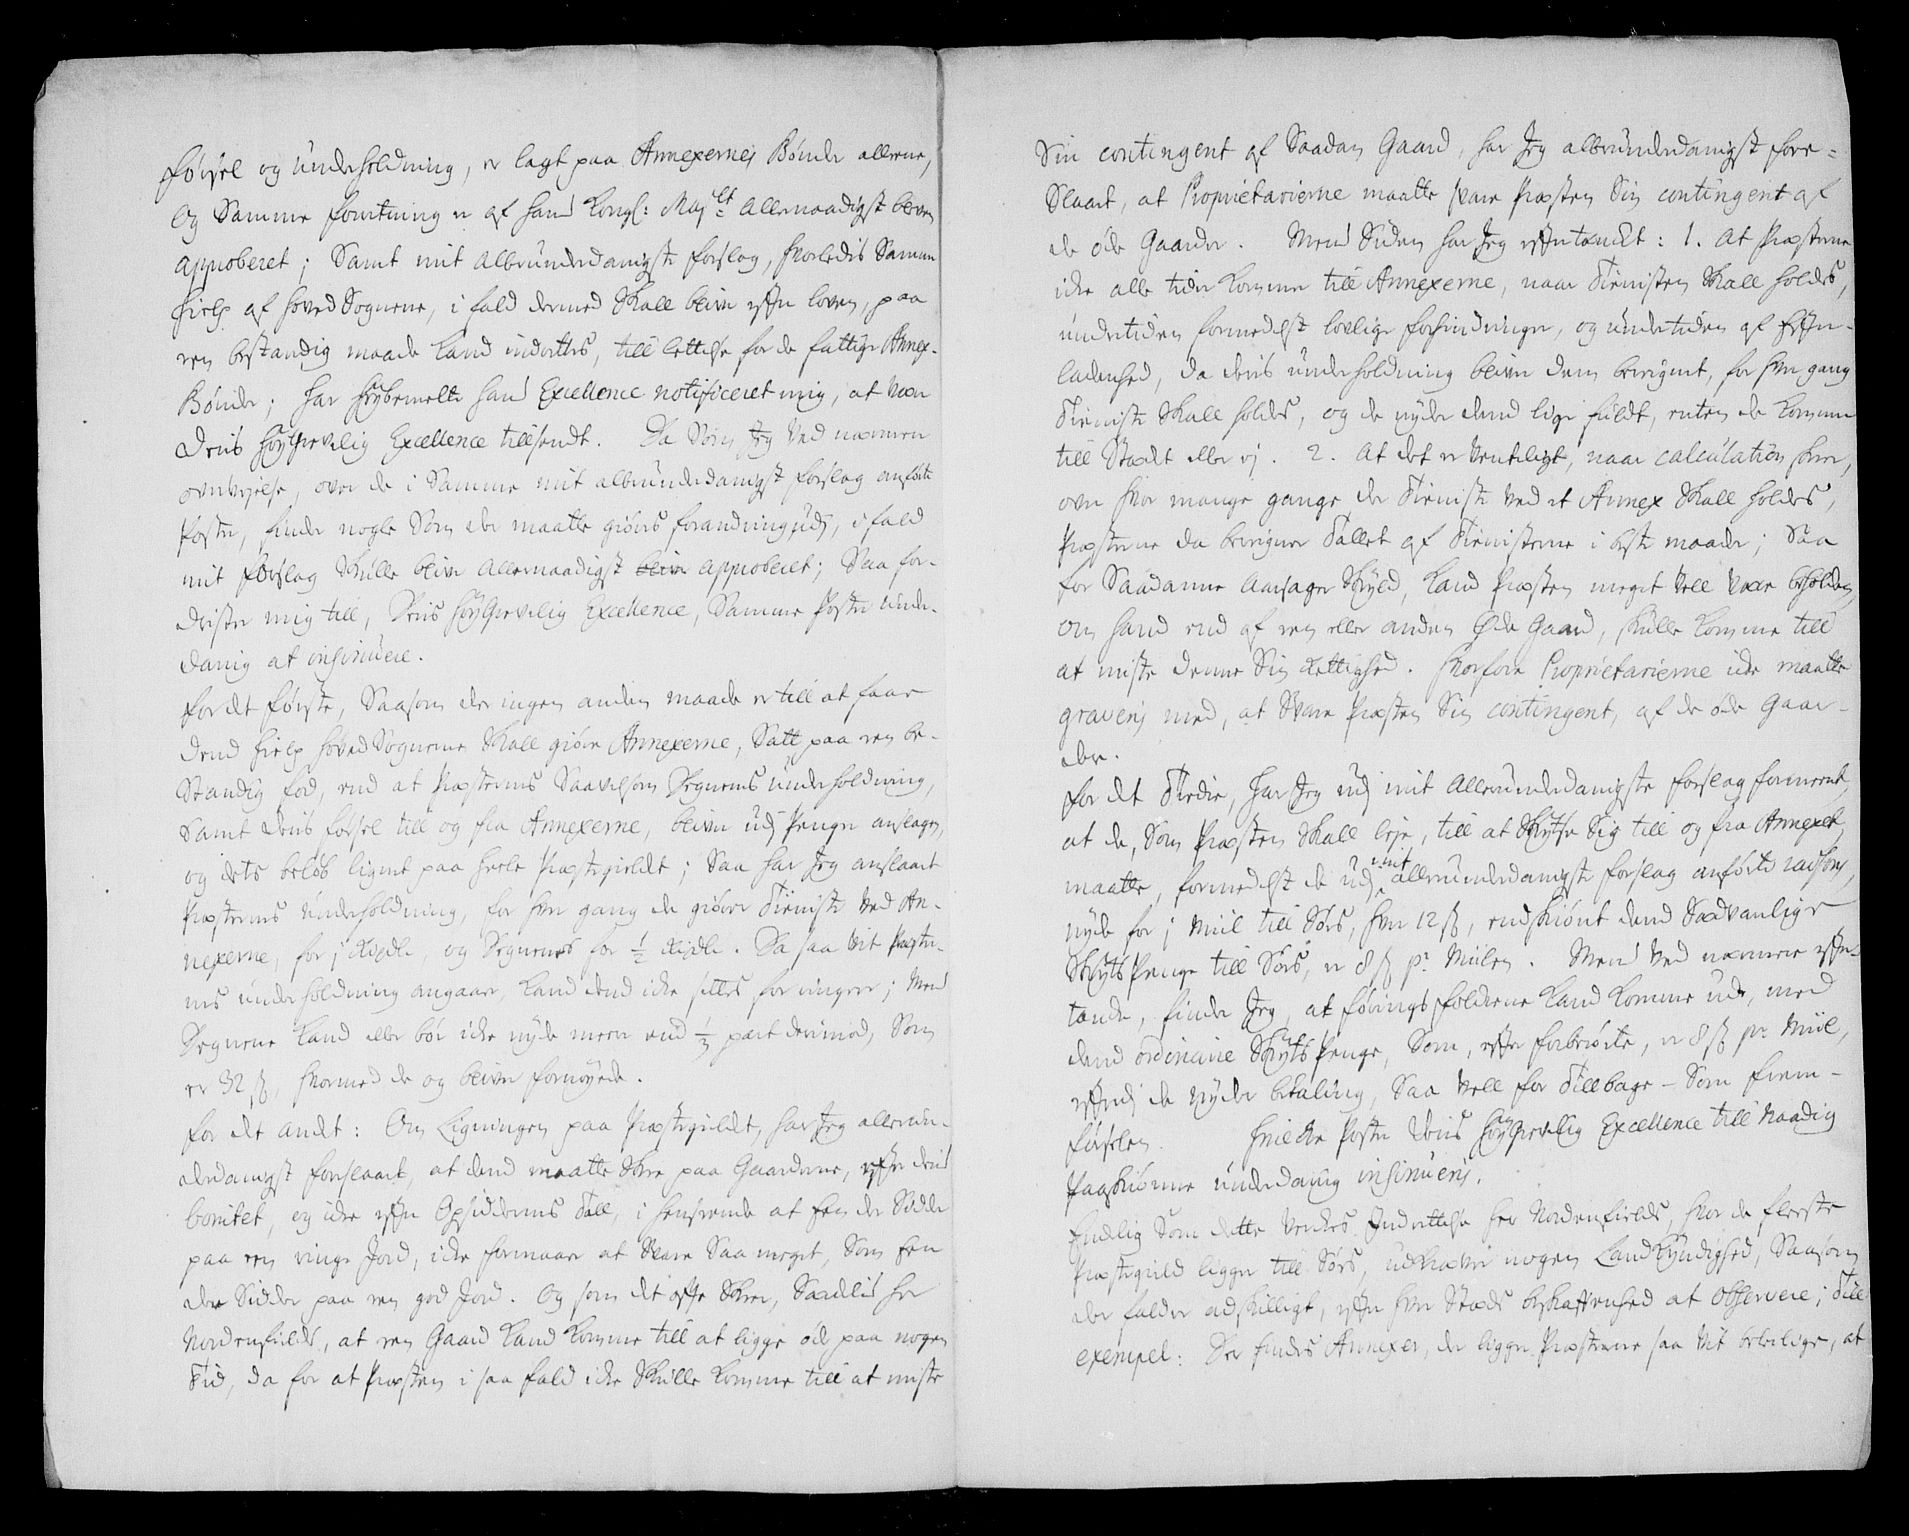 førsel og underholdning, er lagt paa Annexernes Bønder allene,
og Samme forretning er af hans Kongl: Maj.tt allernaadigst bleven
approberet; Samt mit allerunderdanigste forslag, hvorledis Samme
hielp af hovedSognerne, i fald dermed skall blive efter loven, paa
een bestandig maade kand indrettes, till lettelse for de fattige Annex-
Bønder; har høybemelte hans Excellence notificeret mig, at være
Deris HøyGrevelig Excellence tillsendt. Da Som Jeg ved nærmere
overvejelse, over de i Samme mit allerunderdanigst forslag anførte
Poster, finder nogle Som der maatte giøris forandring udj, i fald
mit forslag skulle blive allernaadigst blive approberet; Saa for-
drister mig till, Deris HøyGrevelig Excellence, Samme Poster under-
danig at insinuere.
for det første, Saasom der ingen anden maade er till at faae
dend hielp hovedSognerne skall giøre Annexerne, Satt paa een be-
standig fod, end at Præsternis Saavelsom Degnernis underholdning,
samt deris førsel till og fra Annexerne, bliver udj Penge anslagen,
og dets beløb lignet paa heele Præstegieldet; Saa har Jeg anslaaet
Præsternis underholdning, for hver gang de giøre Tieniste ved An-
nexerne, for j Rixdlr, og Degnernes for ½ Rixdlr. Da saa vit Præster-
nis underholdning angaaer, kand dend icke settes for ringere; Mens
Degnerne kand eller bør icke nyde meere end ⅓ part derimod, Som
er 32 ß, hvormed de og bliver fornøyede.
for det andet: Om Ligningen paa Præstegieldet, har Jeg allerun-
derdanigst forslaaet, at dend maatte Skee paa Gaarderne, efter deris
bonitet, og icke efter Opsiddernis Tall, i henseende at hver der Sidder
paa een ringe Jord, icke formaaer at Svare Saa meget, Som hver
der Sidder paa een god Jord. Og som det ofte Skeer, Særdelis her
Nordenfields, at een Gaard kand komme till at ligge øde paa nogen
Tid, da for at Præsten i saa fald icke skulle komme till at miste
Sin contingent af Saadan Gaard, har Jeg allerunderdanigst fore-
Slaaet, at Proprietarierne maatte svare Præsten Sin contingent af
de øde Gaarder. Mens Siden har Jeg eftertænckt: 1. At Præsterne
icke alle tider komme till Annexerne, naar Tienisten Skall holdes,
undertiden formedelst lovlige forhindringer, og undertiden af Efter-
ladenhed, da deris underholdning bliver dem beregnet, for hver gang
Tieniste skall holdes, og de nyder dend lige fuldt, enten de komme
till Stædet eller ej. 2. At det er venteligt, naar calculation skeer,
over hvor mange gange der Tieniste ved et Annex skall holdes,
Præsterne da beregner Tallet af Tienisterne i beste maade; Saa
for Saadanne Aarsager skyld, kand Præsten meget vell være beholden,
om hand end af een eller anden Øde Gaard, skulle komme till
at miste denne Sin rettighed. hvorfore Proprietarierne icke maatte
graveris med, at Svare Præsten Sin contingent, af de øde Gaar-
der.
for det Tredie, har Jeg udj mit allerunderdanigste forslag formeent,
at de, som Præsten Skall leje, till at Skydse Sig till og fra Annexet,
maatte, formedelst de udj mit allerunderdanigste forslag anførte raison,
nyde for j Miil till Søes, hver 12 ß, endskiønt dend Sædvanlige
SkydsPenge till Søes, er 8 ß pr. Miilen. Mens ved nærmere efter-
tancke, finder Jeg, at føringsfolckene kand komme ud, med
dend ordinaire SkydsPenge, Som, efter forberørte, er 8 ß pr Miil,
efterdj de nyder betaling, Saa vell for Tillbage- Som frem-
førselen. hvilcke Poster Deris HøyGrevelig Excellence till Naadig
Paaskiønne underdanig insinueris.
Endelig Som dette Verckes Indrettelse her Nordenfields, hvor de fleeste
Præstegield ligger till Søes, udkræver nogen LandKyndighed, Saasom
der falder adskilligt, efter hver Stæds beskaffenhed at observere; Till
exempel: Der findes Annexer, der ligger Præsterne saa vit beleilige, at